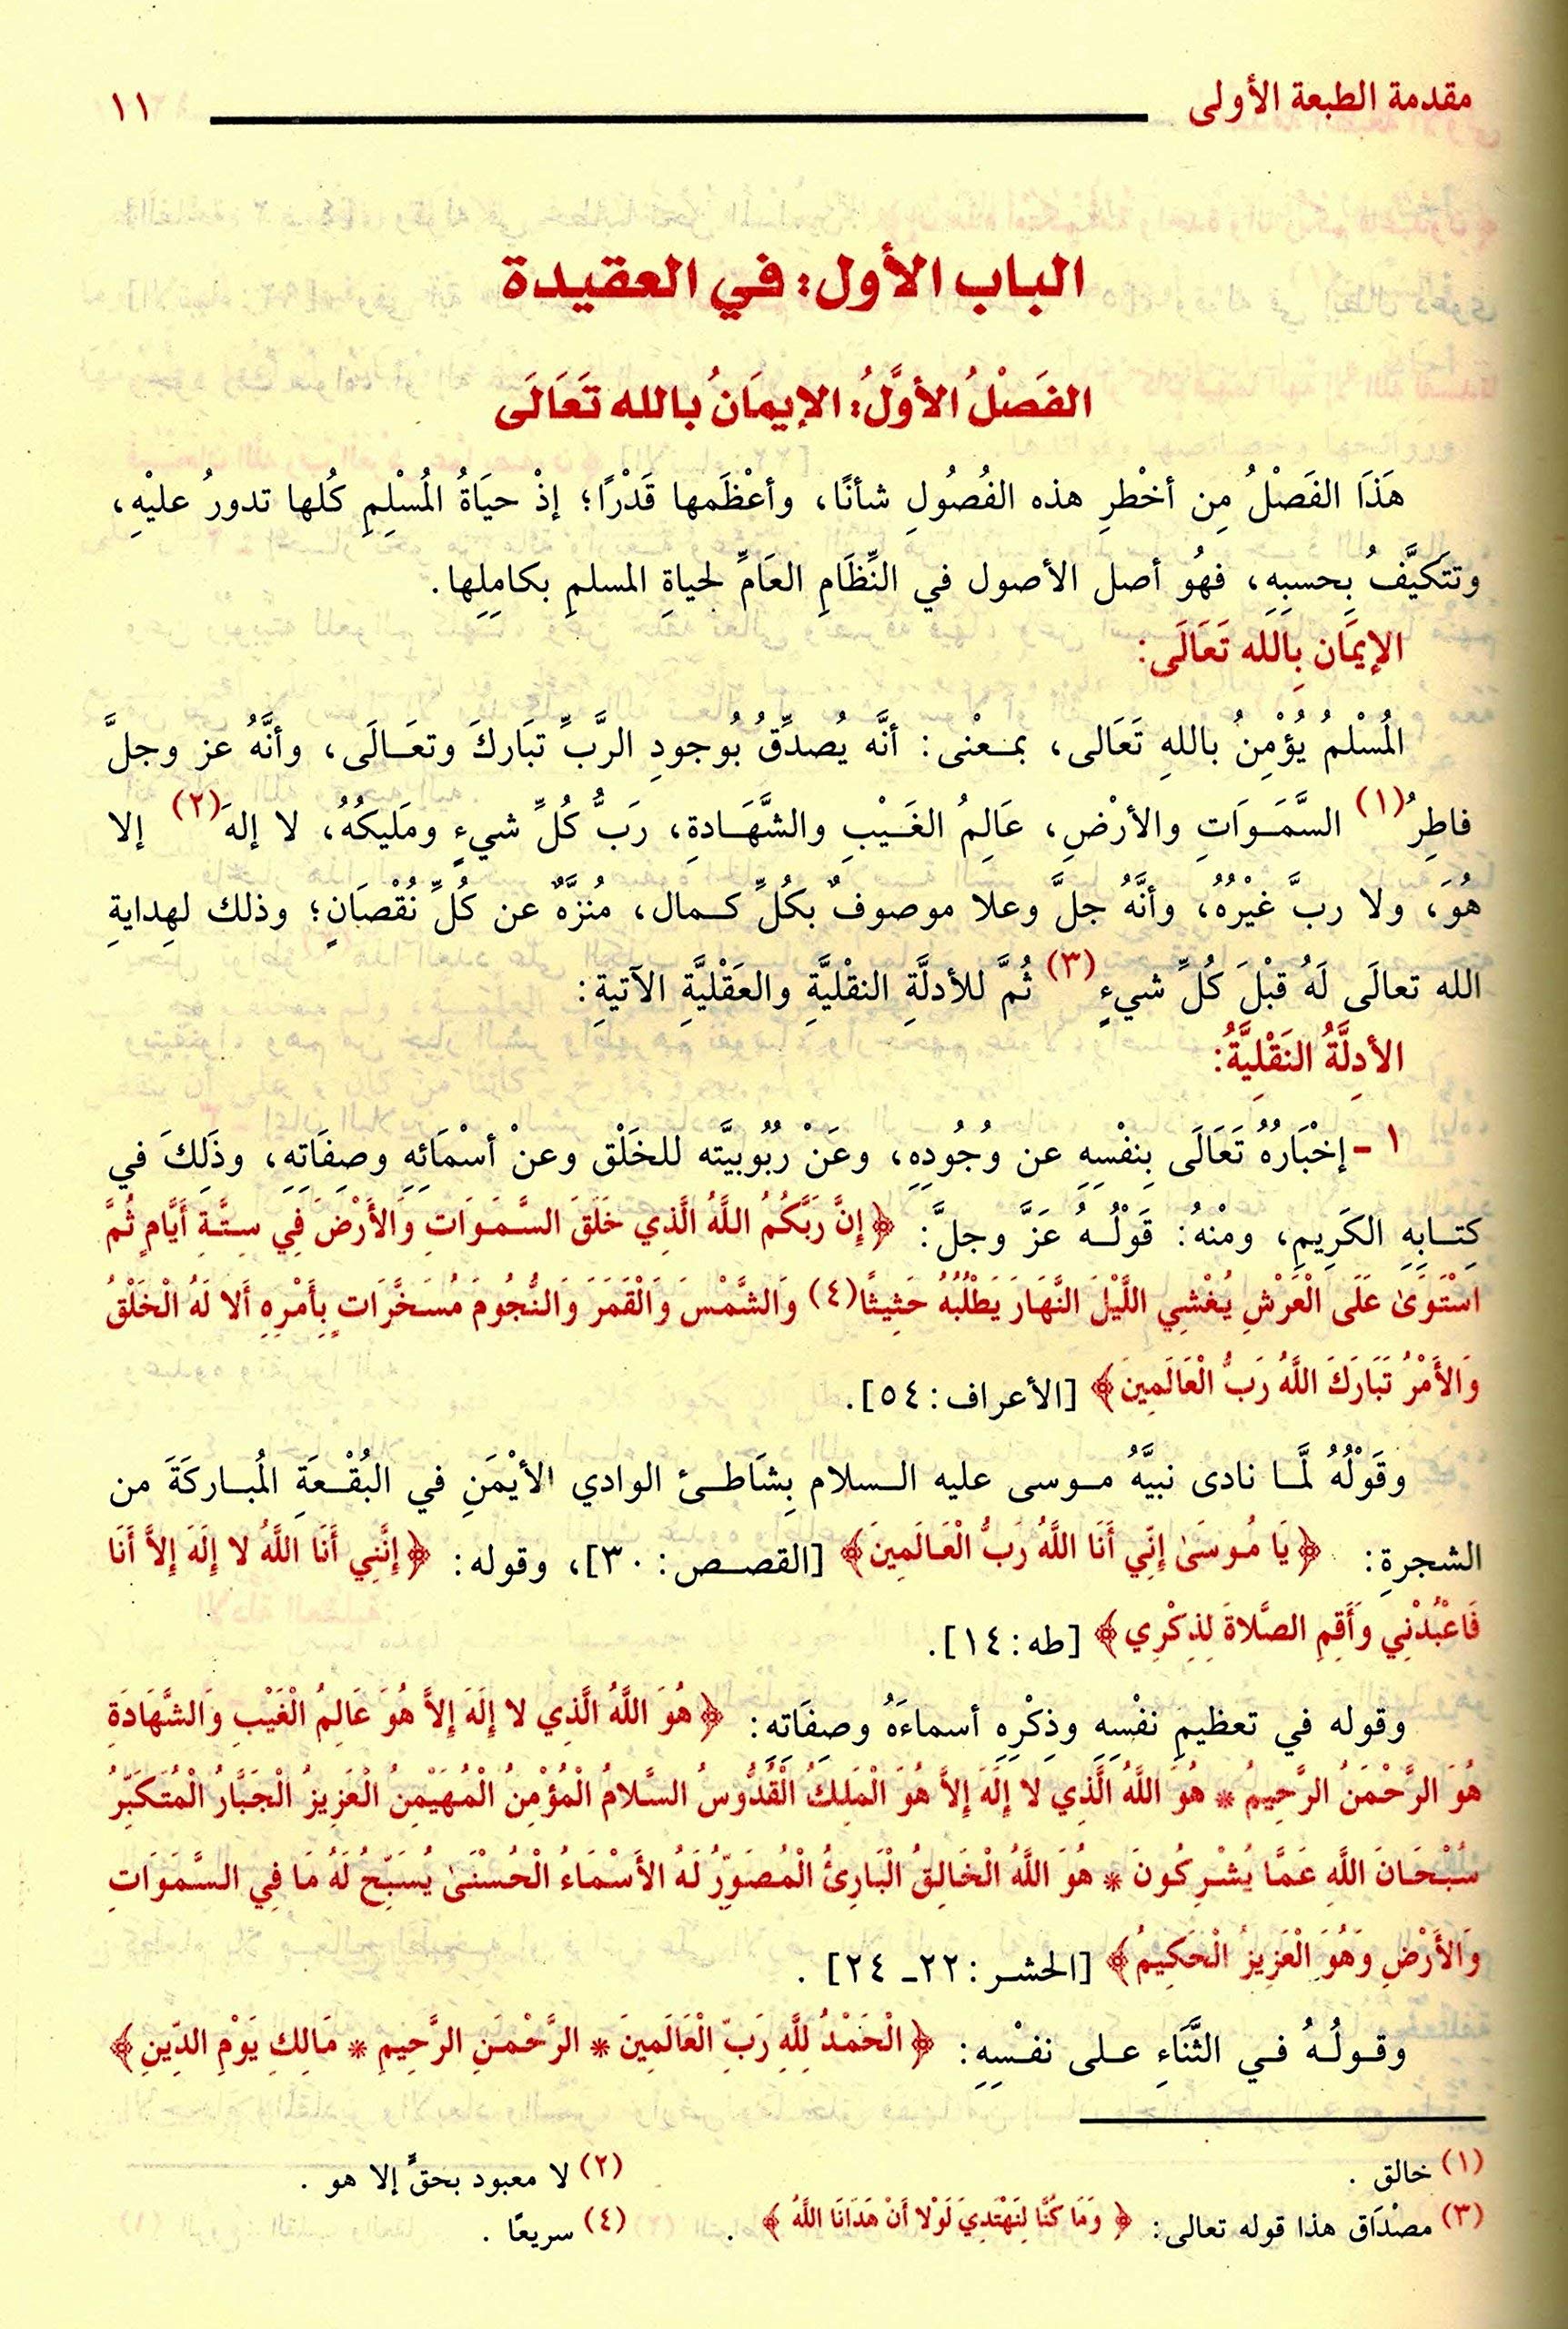 مقدمة الطبعة الأولى ١١
الباب الأول: في العقيدة
الفَصْلُ الأوَّلُ: الإيمَانُ بالله تَعَالَى
هَذَا الفَصْلُ مِن أخْطرِ هذه الفُصُولِ شأنًا، وأعْظَمها قَدْرًا؛ إذْ حيَاةُ المُسْلِمِ كُلها تدورُ عليْهِ،
وتتَكيَّفُ بِحسبِهِ، فهُو أصل الأصول في النِّظَامِ العَامِّ لحياةِ المسلمِ بكامِلِها.
الإيمَان بِالله تَعَالَى:
المُسْلمُ يُؤْمِنُ باللهِ تَعَالى، بمعْنى: أنَّه يُصدِّقُ بُوجودِ الرَّبِّ تبَاركَ وتعَالَى، وأنَّهُ عز وجلَّ
فاطِرُ(١) السَّمَوَاتِ والأرْضِ، عَالِمُ الغَيْبِ والشَّهَادةِ، رَبُّ كُلِّ شيءٍ ومَليكُهُ، لا إلهَ(٢) إلا
هُوَ، ولا ربَّ غيْرُهُ، وأنَّهُ جلَّ وعلا موصوفٌ بكُلِّ كمال، مُنزَّهٌ عن كُلِّ نُقْصَانٍ؛ وذلك لهِدايةِ
الله تعالَى لَهُ قبْلَ كُلِّ شيءٍ(٣) ثُمَّ للأدلَّةِ النقْليَّةِ والعَقْليَّةِ الآتيةِ:
الأدِلَّةُ النَقْلِيَّةُ:
١ - إخْبَارُهُ تَعَالَى بِنفْسِهِ عن وُجُودِهِ، وعَنْ رُبُوبيَّته للخَلْق وعنْ أسْمَائِهِ وصِفَاتِهِ، وذَلِكَ في
كِتابِهِ الكَرِيمِ، ومْنهُ: قَوْلُهُ عَزَّ وجلَّ: ﴿إِنَّ رَبَّكُمُ اللَّهُ الَّذِي خَلَقَ السَّمَوَاتِ وَالأَرْضَ فِي سِتَّةِ أَيَّامٍ ثُمَّ
اسْتَوَىٰ عَلَى الْعَرْشِ يُغْشِي اللَّيْلَ النَّهَارَ يَطْلُبُهُ حَثِيثًا(٤) وَالشَّمْسَ وَالْقَمَرَ وَالنُّجُومَ مُسَخَّرَاتٍ بِأَمْرِهِ أَلا لَهُ الْخَلْقُ
وَالأَمْرُ تَبَارَكَ اللَّهُ رَبُّ الْعَالَمِينَ﴾ [الأعراف: ٥٤].
وقَوْلُهُ لَّمَا نادى نبيَّهُ موسى عليه السلام بِشَاطئ الوادي الأيْمَنِ في البُقْعَةِ المُباركَةَ من
الشجرةِ: ﴿يَا مُوسَىٰ إِنِّي أَنَا اللَّهُ رَبُّ الْعَالَمِينَ﴾ [القصص: ٣٠]، وقوله: ﴿إِنَّنِي أَنَا اللَّهُ لا إِلَهَ إِلاَّ أَنَا
فَاعْبُدْنِي وَأَقِمِ الصَّلاةَ لِذِكْرِي﴾ [طه: ١٤].
وقوله في تعظيمِ نفْسِهِ وذِكْرِهِ أسماءَهُ وصِفَاتِهِ: ﴿هُوَ اللَّهُ الَّذِي لا إِلَهَ إِلاَّ هُوَ عَالِمُ الْغَيْبِ وَالشَّهَادَةِ
هُوَ الرَّحْمَنُ الرَّحِيمُ * هُوَ اللَّهُ الَّذِي لا إِلَهَ إِلاَّ هُوَ الْمَلِكُ الْقُدُّوسُ السَّلامُ الْمُؤْمِنُ الْمُهَيْمِنُ الْعَزِيزُ الْجَبَّارُ الْمُتَكَبِّرُ
سُبْحَانَ اللَّهِ عَمَّا يُشْرِكُونَ * هُوَ اللَّهُ الْخَالِقُ الْبَارِئُ الْمُصَوِّرُ لَهُ الأَسْمَاءُ الْحُسْنَىٰ يُسَبِّحُ لَهُ مَا فِي السَّمَوَاتِ
وَالأَرْضِ وَهُوَ الْعَزِيزُ الْحَكِيمُ﴾ [الحشر: ٢٢ـ ٢٤] .
وقولُهُ في الثَّنَاءِ على نفْسِهِ: ﴿الْحَمْدُ لِلَّهِ رَبِّ الْعَالَمِينَ * الرَّحْمَنِ الرَّحِيمِ * مَالِكِ يَوْمِ الدِّينِ﴾
(١) خالق . (٢) لا معبود بحقٍّ إلا هو .
(٣) مصْدَاق هذا قوله تعالى: ﴿وَمَا كُنَّا لِنَهْتَدِيَ لَوْلا أَنْ هَدَانَا اللَّهُ﴾ . (٤) سريعًا .